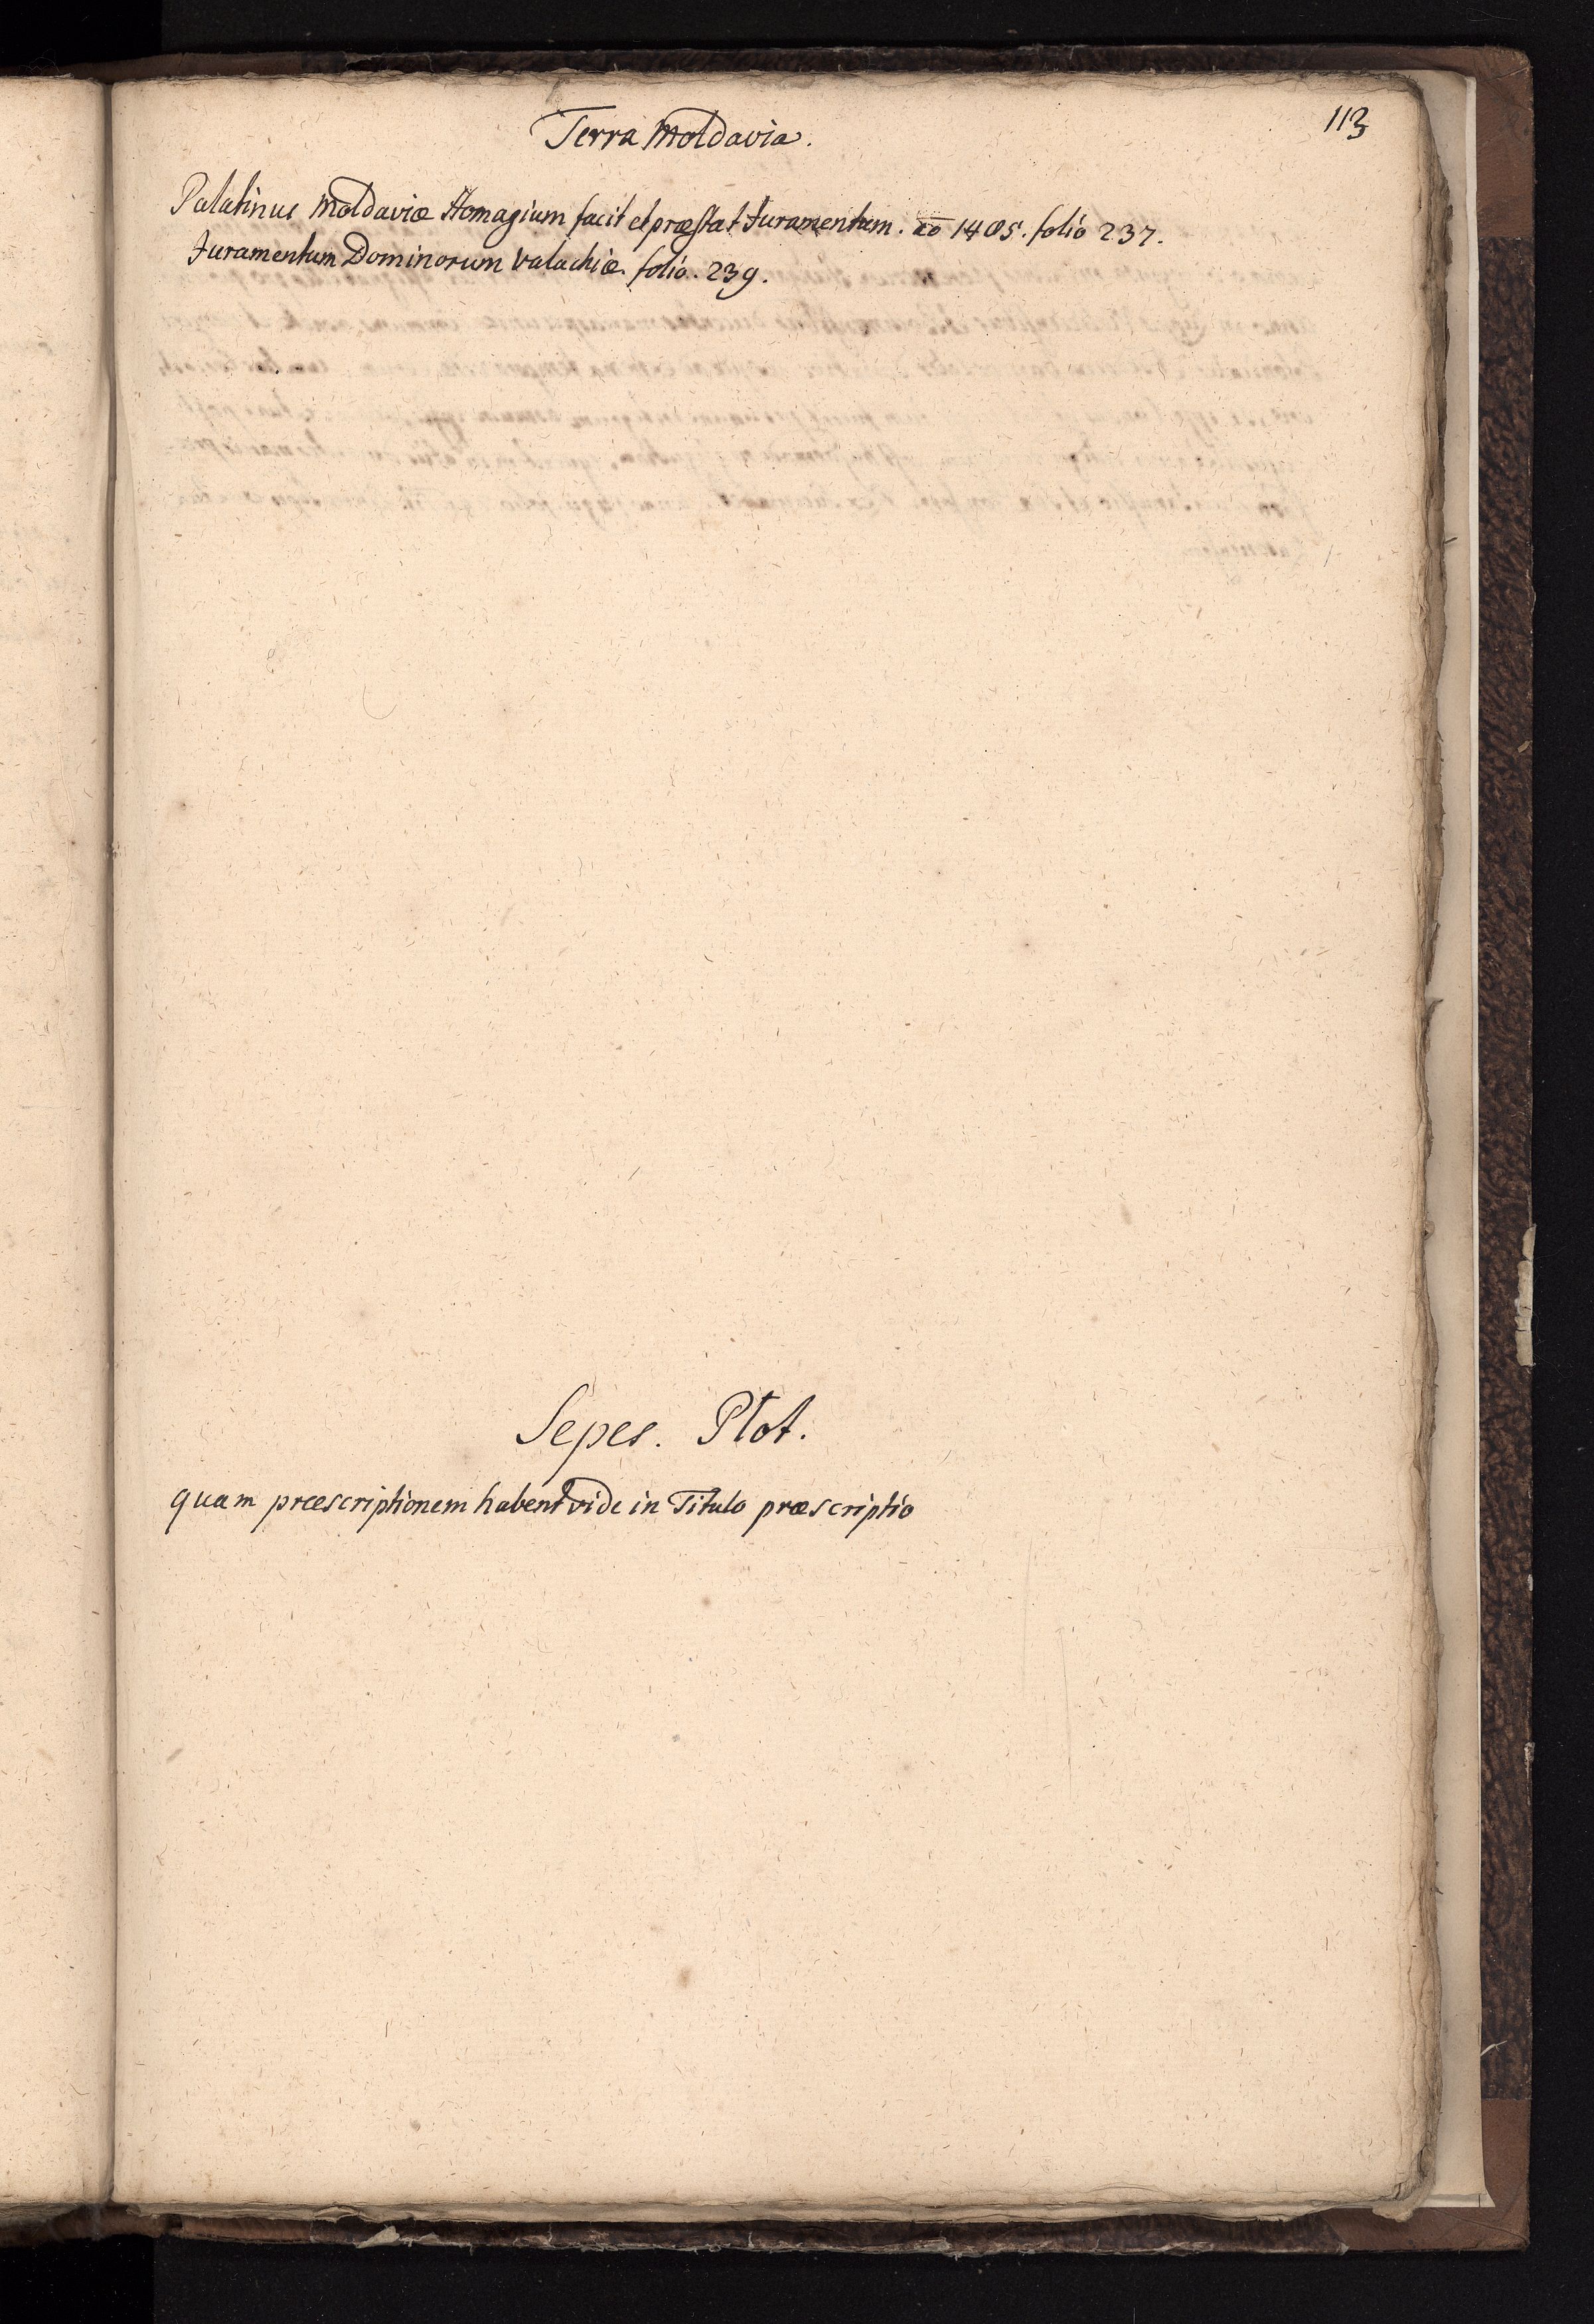 113
Terra Moldavia.
Palatinus Moldaviæ Homagium facit et præstat Juramentum. a͞o 1405. folio 237.
Juramentum Dominorum Valachiæ. folio. 239.
Sepes. Płot.
quam præscriptionem habent vide in Titulo præscriptio